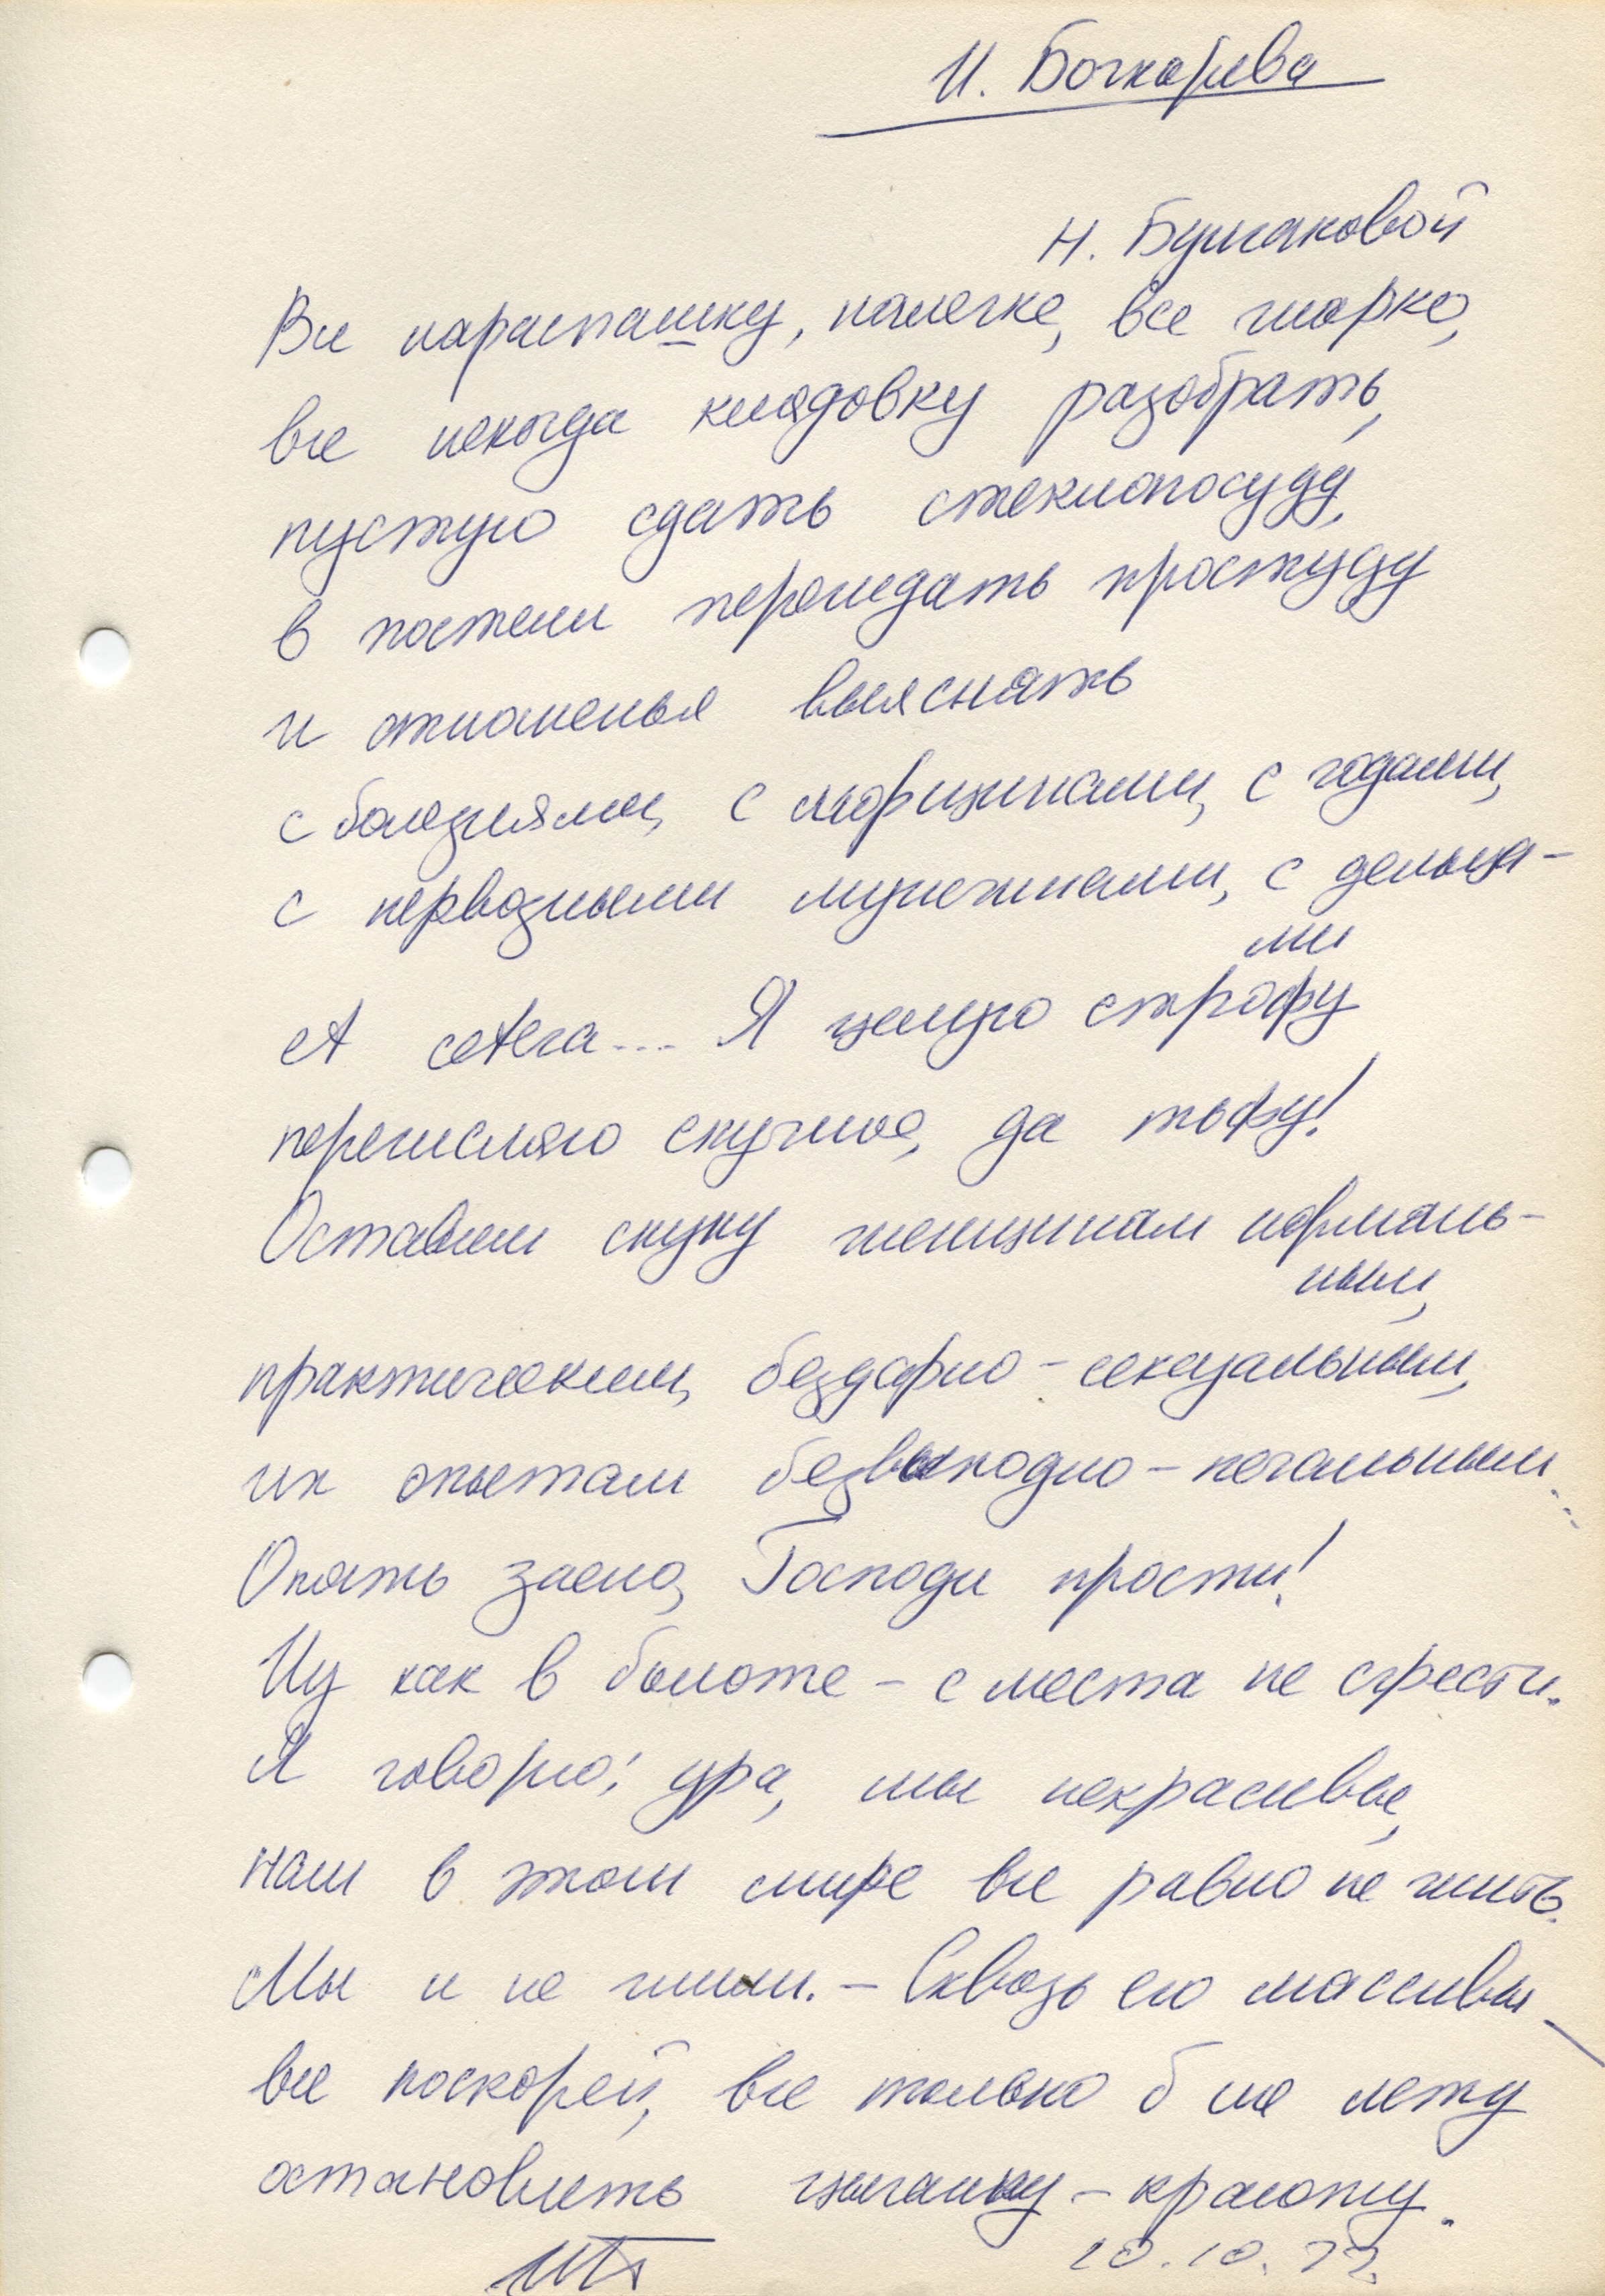 И. Бочкарева
Н. Бушаковой
Все нараспашку, налегке, все жарко,
все некогда кладовку разобрать,
пустую сдать стеклопосуду,
в постели перележать простуду
и отношенья выяснять
с болезнями, с морщинами, с годами,
с нервозными мужчинами, с дельца-
ми
А сетera... Я целую строфу
перечисляю скучное, да тьфу!
Оставим скуку женщинам нормаль-
ным,
практическим, бездарно-сексуальным,
их опытам безвыходно-печальным...
Опять заело, Господи прости!
Ну как в болоте – с места не сгрести.
Я говорю: ура, мы некрасивые,
нам в этом мире все равно не жить.
Мы и не жили. – Сквозь его массивы
все поскорей, все только б на лету
остановить цыганку-красоту.
20.10.77.